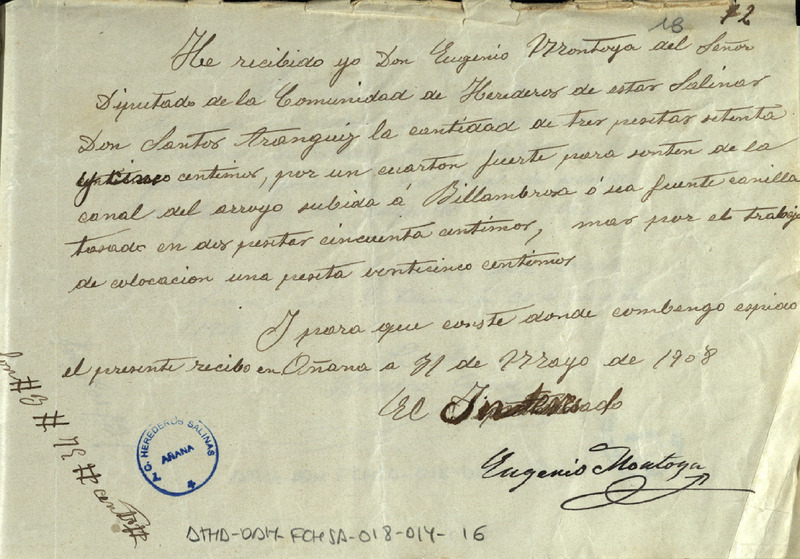 18 72
He recibido yo Don Eugenio Montoya del Señor
Diputado de la Comunidad de Herederos de estas Salinas
Don Santos Aranguiz la cantidad de tres pesetas setenta
y cinco centimos, por un cuarton fuerte para sosten de la
canal del arroyo subida á Billambrosa ó sea fuente canilla
tasado en dos pesetas cincuenta centimos, mas por el trabajo
de colocacion una peseta venticinco centimos
I para que conste donde combengo espido
el presente recibo en Añana a 31 de Mayo de 1908
El Interesado
Eugenio Montoya
Son # 3 # 75 # centos #
A.C. HEREDEROS SALINAS
AÑANA
ATHA-DAH-FCHSA-018-014-16